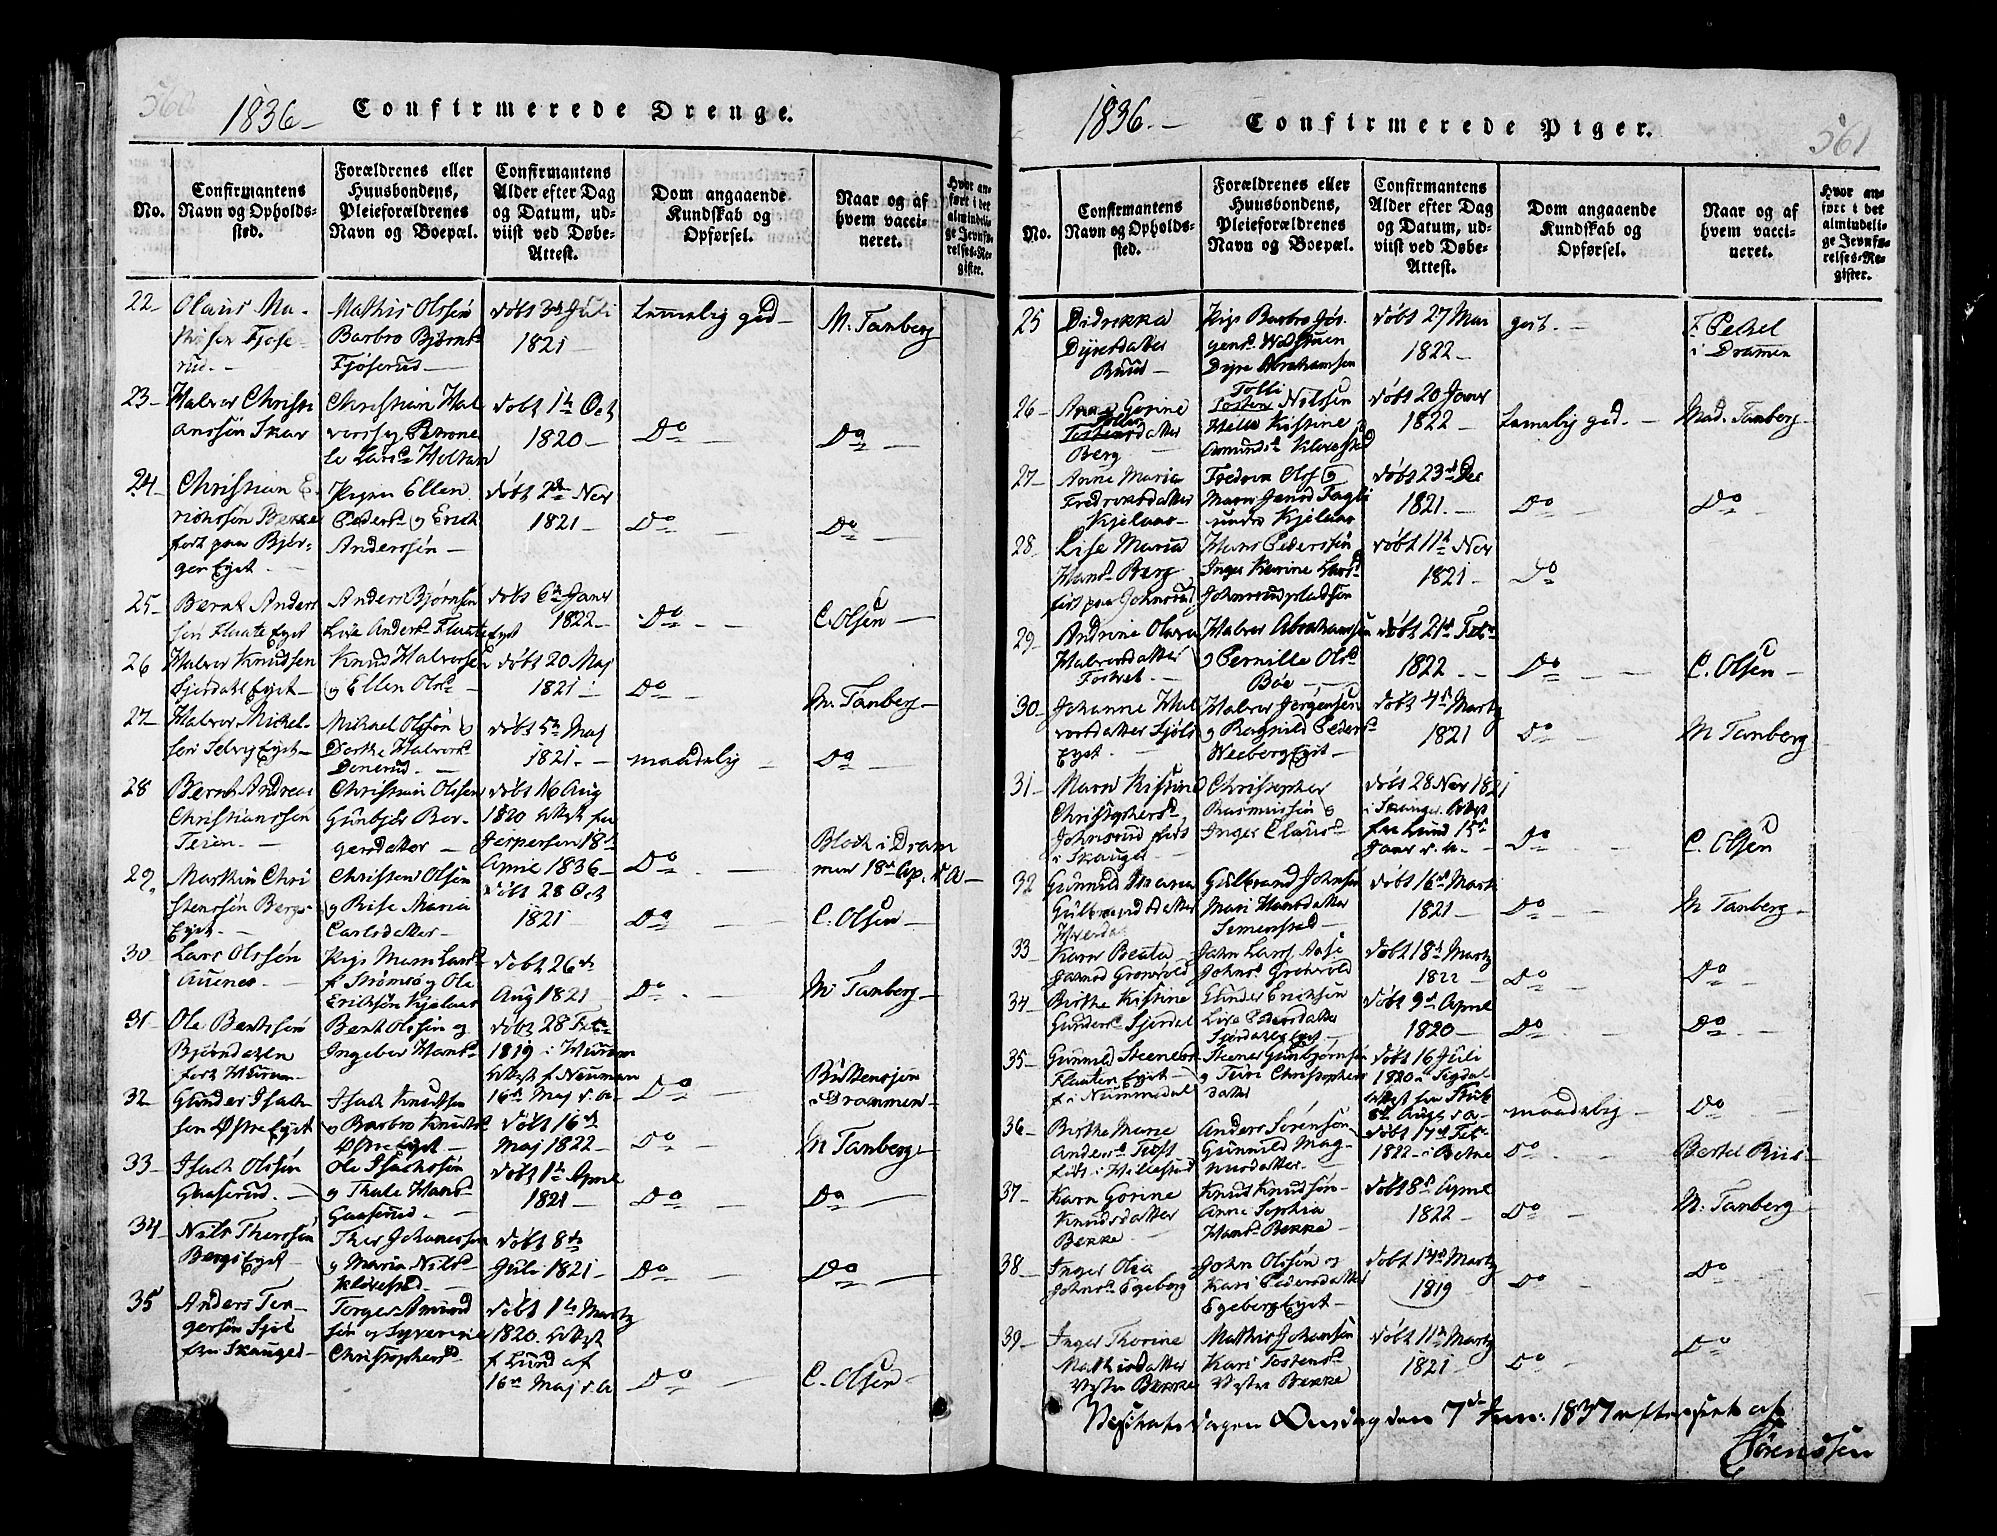 560
1836
Confirmerede Drenge.
No.
Confirmantens
Navn og Opholds-
sted.
Forældrenes eller
Huusbondens,
Pleieforældrenes
Navn og Boepæl.
Confirmantens
Alder efter Dag
og Datum, ud-
viist ved Døbe-
Attest.
Dom angaaende
Kundskab og
Opførsel.
Naar og af
hvem vacci-
neret.
Hvor an-
ført i det
almindeli-
ge Jevnfø-
relses-Re-
gister.
22
Olaus Ma-
Fjøse-
rud
Mathis Olssøn
Barbro Bjørnsd
Fjøserud
døbt 3d Juli
1821
temelig god
M. Tanberg
23
Halvor Christi
anssøn Skar
Christian Hal
vorss og Petrone
le Larsd Holtan
døbt 1ste Oct
1820
Do
Do
24
Christian E
richssøn Bekke
født paa Bjør-
ger Ejet
Pigen Ellen
Pedersd og Erich
Anderssøn
døbt 2d Nov
1821
Do
Do
25
Bernt Anders
søn Flaate Ejet
Anders Bjørnsen
Lise Andersd Flaate Ejet
døbt 6te Janr
1822
Do
C. Olsen
26
Halvor Knudsen
Fjerdahl Ejet
Knud Halvorsen
og Ellen Olsd
døbt 20 Maj
1821
Do
M. Tanberg
27
Halvor Mickel
sen Selvig Ejet
Mikael Olssøn og
Dorthe Halvorsd
Denerud
døbt 5te Maj
1821
maadelig
Do
28
Bernt Andreas
Christianssen
Teien
Christian Olssen
Gunbjør Ber-
gersdatter
døbt 16 Aug
1820 Attest fra
Jespersen 18de
April 1836
Do
Block i Dram
men 18de Ap. d A
29
Marthin Chri
stenssøn Bergs
Ejet
Christen Olsøn
og Rise Maria
Carlsdatter
døbt 28 Oct
1821
Do
C. Olsen
30
Lars Olssøn
Auenes
Pige Maren Larsd
f Strømsø og Ole
Eriksøn Kjelaas
døbt 26de
Aug 1821
Do
M. Tanberg
31
Ole Berntssøn
Bjørndalen
født Hurum
Bernt Olssøn og
Ingebor Hansd
døbt 28 Febr
1819 i Hurum
Attest f Neuman
16de Maj d. A
Do
Buttensjøn
i Drammen
32
Gunder Isach
søn Østre Ejet
Isach Knudsøn
og Barbro Knudsd
Østre Ejet
døbt 16de
Maj 1822
Do
M Tanberg
33
Isach Olssøn
Gaaserud
Ole Isachssøn
og Thale Hansd
Gaaserud
døbt 1ste April
1821
Do
Do
34
Nils Therssøn
Bergs Ejet
Ther Johanessøn
og Maria Nilsd
Klevestad
døbt 8de
Juli 1821
Do
Do
35
Anders Tor-
gersøn Sjøl
fra Skauged
Torger Amund
søn og Syverine
Christophersd
døbt 1ste Martz
1820 Attest
f Lund af
16de Maj d. A
Do
C. Olsen
1836
Confirmerede Piger.
561
No.
Confirmantens
Navn og Opholds-
sted.
Forældrenes eller
Huusbondens,
Pleieforældrenes
Navn og Boepæl.
Confirmantens
Alder efter Dag
og Datum, ud-
viist ved Døbe-
Attest.
Dom angaaende
Kundskab og
Opførsel.
Naar og af
hvem vacci-
neret.
Hvor an-
ført i det
almindeli-
ge Jevnfø-
relses-Re-
gister.
25
Didrikka
Dyresdatter
Buud
Pige Barbro Jør-
gensd
Dyre Abrahamsen
døbt 27 Mai
1822
godt
F Peckel
i Dramen
26
Anne Gorine
Tolle
Tostensdatter
Berg
Tolli
Tosten Nilssen
Helle Kistine
Amundsd Klevestad
døbt 20 Janr
1822
temelig god
Mad. Tanberg
27
Anne Maria
Fredriksdatter
Kjelaas
Fredrik Olss og
Maren Jensd Fagli
under Kjelaas
døbt 23de Dec
1821
Do
Do
28
Lise Maria
Hansd Berg
født paa Johnsrud
Hans Pederssøn
Inger Karine Larsd
Johnsrudpladsen
døbt 11te Nov
1821
Do
29
Andrine Olava
Halvorsdatter
Halvor Abrahamsen
og Pernille Olsd
Bøe
døbt 21de Febr
1822
Do
C. Olsen
30
Johanne Hal
vorsdatter Sjøls
Ejet
Halvor Jørgensen
og Ragnild Pedersd
Weeberg Ejet
døbt 4de Martz
1821
Do
M Tanberg
31
Maren Kistine
Christophersd
Johnsrud født
i Skauger
Christopher
Rasmussøn og
Inger Clausd
døbt 28 Nov 1821
i Skauger Attest
fra Lund 15de
Janr d. A.
Do
C. Olsen
32
Gunnild Maria
Gulbrandsdatter
Gulbrand Johnsøn
Mari Hansdatter
Semensstad
døbt 16de Martz
1821
Do
M Tanberg
33
Karen Beata
Johnsd Grønvold
John Larss Aase
Johnsd Grønvold
døbt 18de Martz
1822
Do
Do
34
Birthe Kistine
Gundersd Fjerdal
Gunder Ericksen
Lise Pedersdatter
Fjerdahls Ejet
døbt 9de April
1820
Do
Do
35
Gunnild Steenersd
Flaaten Ejet
f. i Nummedal
Steener Gunbjørnsen
og Turi Christophers
datter
døbt 16 Juli
1820 i Sigdal
Attest fra Stub
8de Aug d A
maadelig
Do
36
Birthe Marie
Andersd Toft
født i Hillestad
Anders Sørensøn
Gunnild Mag-
nusdatter
døbt 17de Febr
1822 i Botne
Do
Bertel Riis
37
Karen Gorine
Knudsdatter
Bekke
Knut Knudsøn
Anne Sophia
Hansd Bekke
døbt 8de April
1822
Do
M. Tanberg
38
Inger Olea
Johnsd Egeberg
John Olssøn og
Kari Pedersdatter
Egeberg Ejet
døbt 14de Martz
1819
Do
Do
39
Inger Thorine
Mathisdatter
Vestre Bekke
Mathis Johansen
Kari Tostensd
Vestre Bekke
døbt 11te Martz
1821
Do
Do
Visitatsdagen Onsdag den 7de Juni 1837 efterseet af
Sørenssen